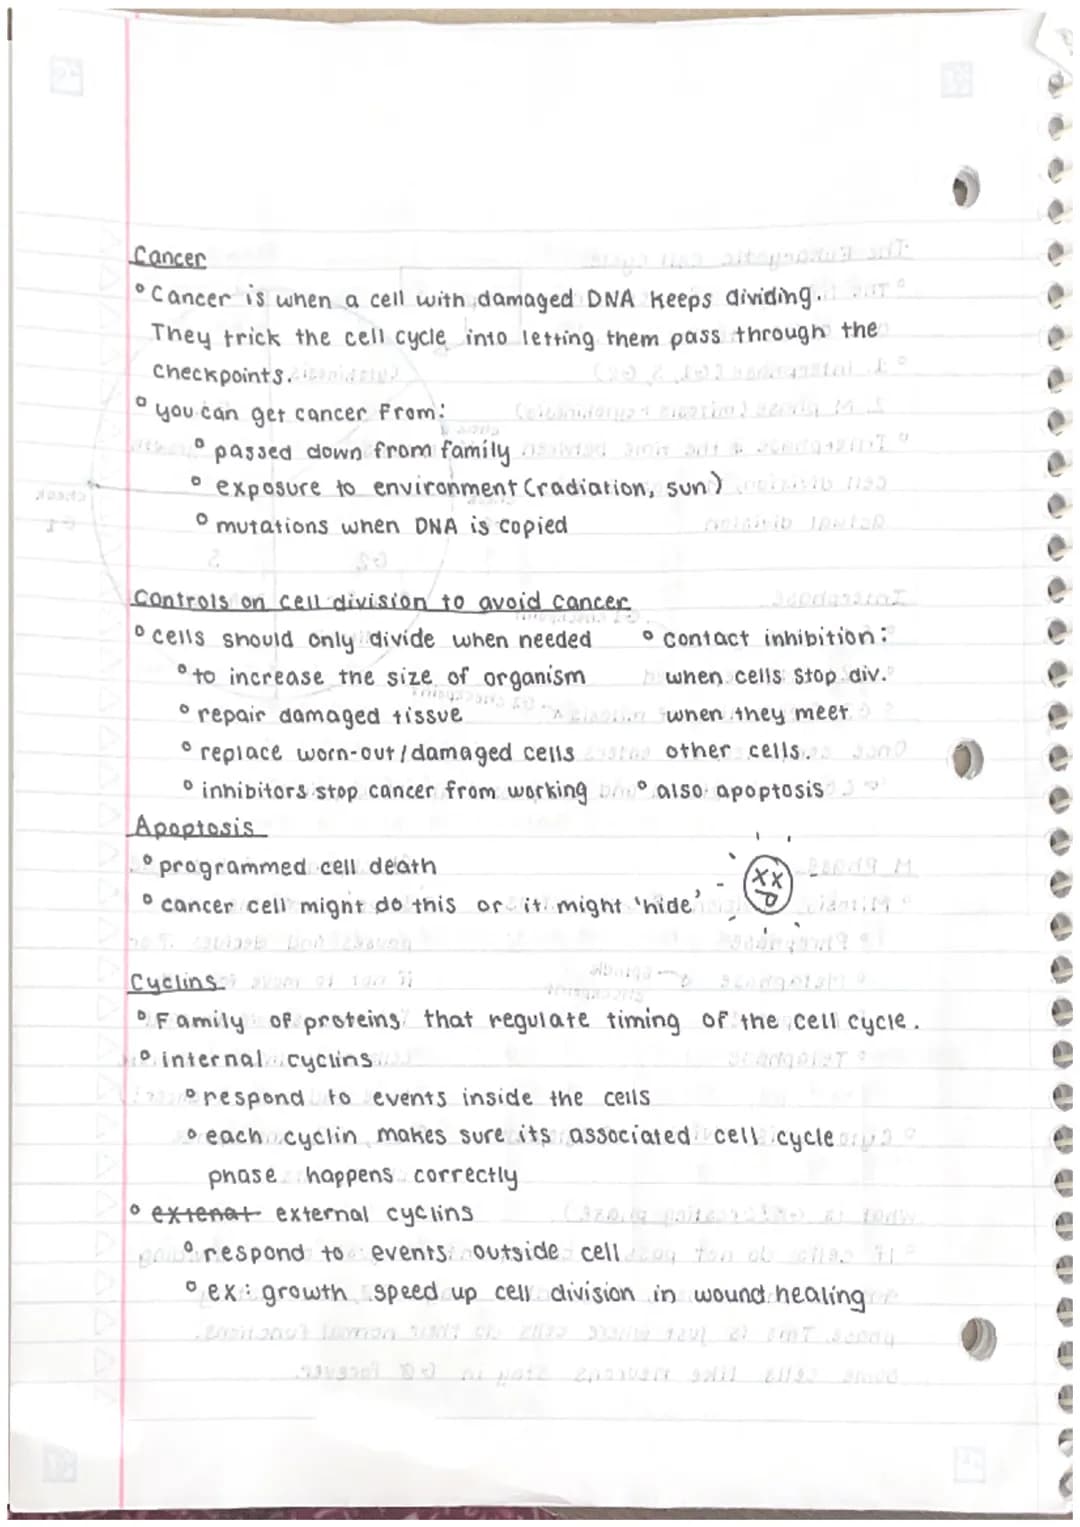 Cancer
° Cancer is when a cell with damaged DNA keeps dividing.
They trick the cell cycle into letting them pass through the
checkpoints.
° you can get cancer from:
° passed down from family
° exposure to environment (radiation, sun)
° mutations when DNA is copied
Controls on cell division to avoid cancer
° cells should only divide when needed
° to increase the size of organism
° repair damaged tissue
° replace worn-out/damaged cells
° inhibitors stop cancer from working
° contact inhibition:
when cells stop div.
when they meet
other cells.
° also apoptosis
Apoptosis
° programmed cell death
° cancer cell might do this or it might 'hide'
Cyclins
° Family of proteins that regulate timing of the cell cycle.
° internal cyclins
° respond to events inside the cells
° each cyclin makes sure its associated cell cycle
phase happens correctly
° extenal external cyclins
° respond to events outside cell
° ex: growth speed up cell division in wound healing